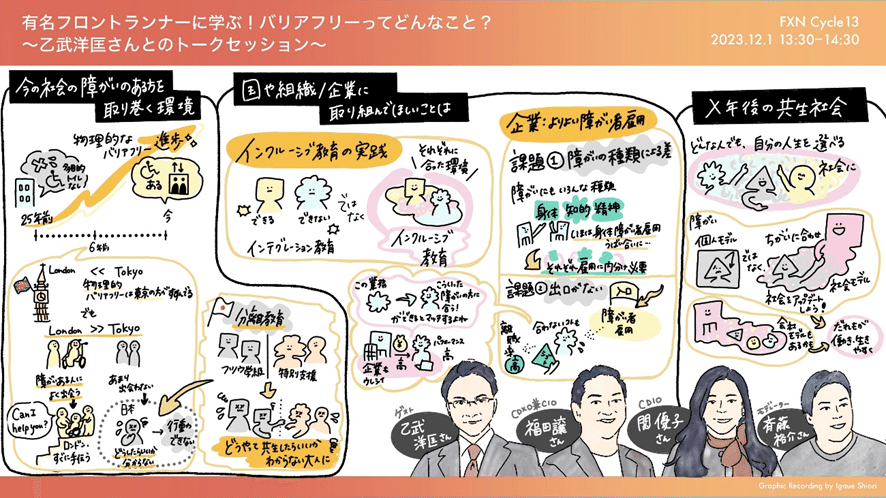 有名フロントランナーに学ぶ！バリアフリーってどんなこと？
〜乙武洋匡さんとのトークセッション〜
FXN Cycle13
2023.12.1 13:30−14:30
今の社会の障がいのある方を
取り巻く環境
物理的な
バリアフリー
進歩
多目的
トイレ
なし
ある
25年前
今
6年前
London << Tokyo
物理的
バリアフリーは東京の方がすすんでる
でも
London >> Tokyo
障がいある人に
よく出会う
あまり
出会わない
Can I
help you?
ロンドン・
すぐに手伝う
日本
どうしたらいいか
分からない
行動
できない
国や組織/企業に
取り組んでほしいことは
インクルーシブ教育の実践
それぞれに
合った環境
できる
できない
ではなく
インテグレーション教育
インクルーシブ
教育
分離教育
フツウ学級
特別支援
どうやって共生したらいいか
わからない大人に
この業務
こういった
障がいの方に
合う！
がピタッとマッチするよね
企業も
うれしい
高
パフォーマンス
高
企業：よりよい障がい者雇用
課題① 障がいの種類による差
障がいにもいろんな種類
身体 知的 精神
いまは身体障がい者雇用
うばい合いに…
それぞれ雇用に内分け必要
課題② 出口がない
離職率
高
合わないコトも
障がい者
雇用
X年後の共生社会
どんな人でも、自分の人生を選べる
社会に
障がい
個人モデル
では
なく、
ちがいに合わせ
社会モデル
社会をアップデート
しよう！
会社
モデルも
あるかも
だれもが
働き・生き
やすく
ゲスト
乙武
洋匡さん
CDXO兼CIO
福田譲
さん
CDIO
関優子
さん
モデレーター
斉藤
裕介さん
Graphic Recording by Igaue Shiori